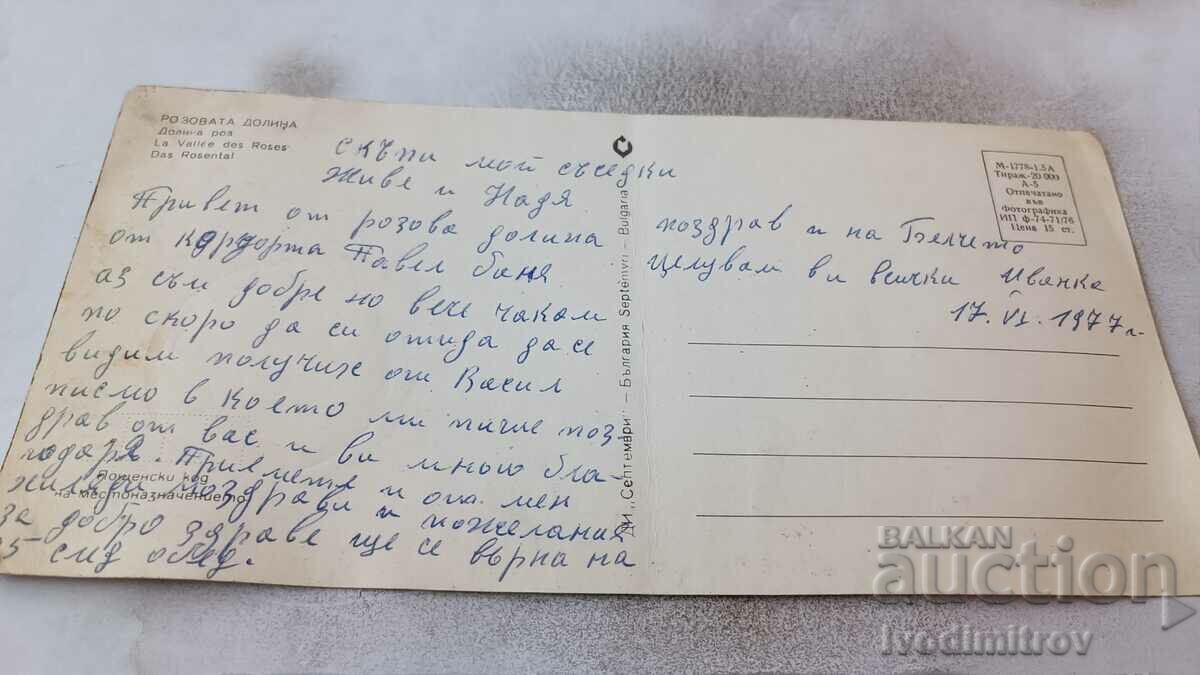 РОЗОВАТА ДОЛИНА
Долина роз
La Vallée des Roses
Das Rosental
скъпи мои съседки
Живе и Надя
Привет от розова долина
от курорта Павел баня
аз съм добре но вече чакам
по скоро да си отида да се
видим получих от Васил
писмо в което ми пише поз-
драв от вас и ви много бла-
годаря. Приемете и от мен
хиляди поздрави и пожелания
за добро здраве ще се върна на
25 след обед.
Пощенски код
на местоназначението
ДИ „Септември" – България Septemvri – Bulgaria
М-1778-1.5А
Тираж-20 000
А-5
Отпечатано
във
Фотографика
ИП ф-74-71/76
Цена 15 ст.
поздрав и на Белчето
целувам ви всички Иванка
17. VI. 1977 г.
BALKAN
auction
Ivodimitrov